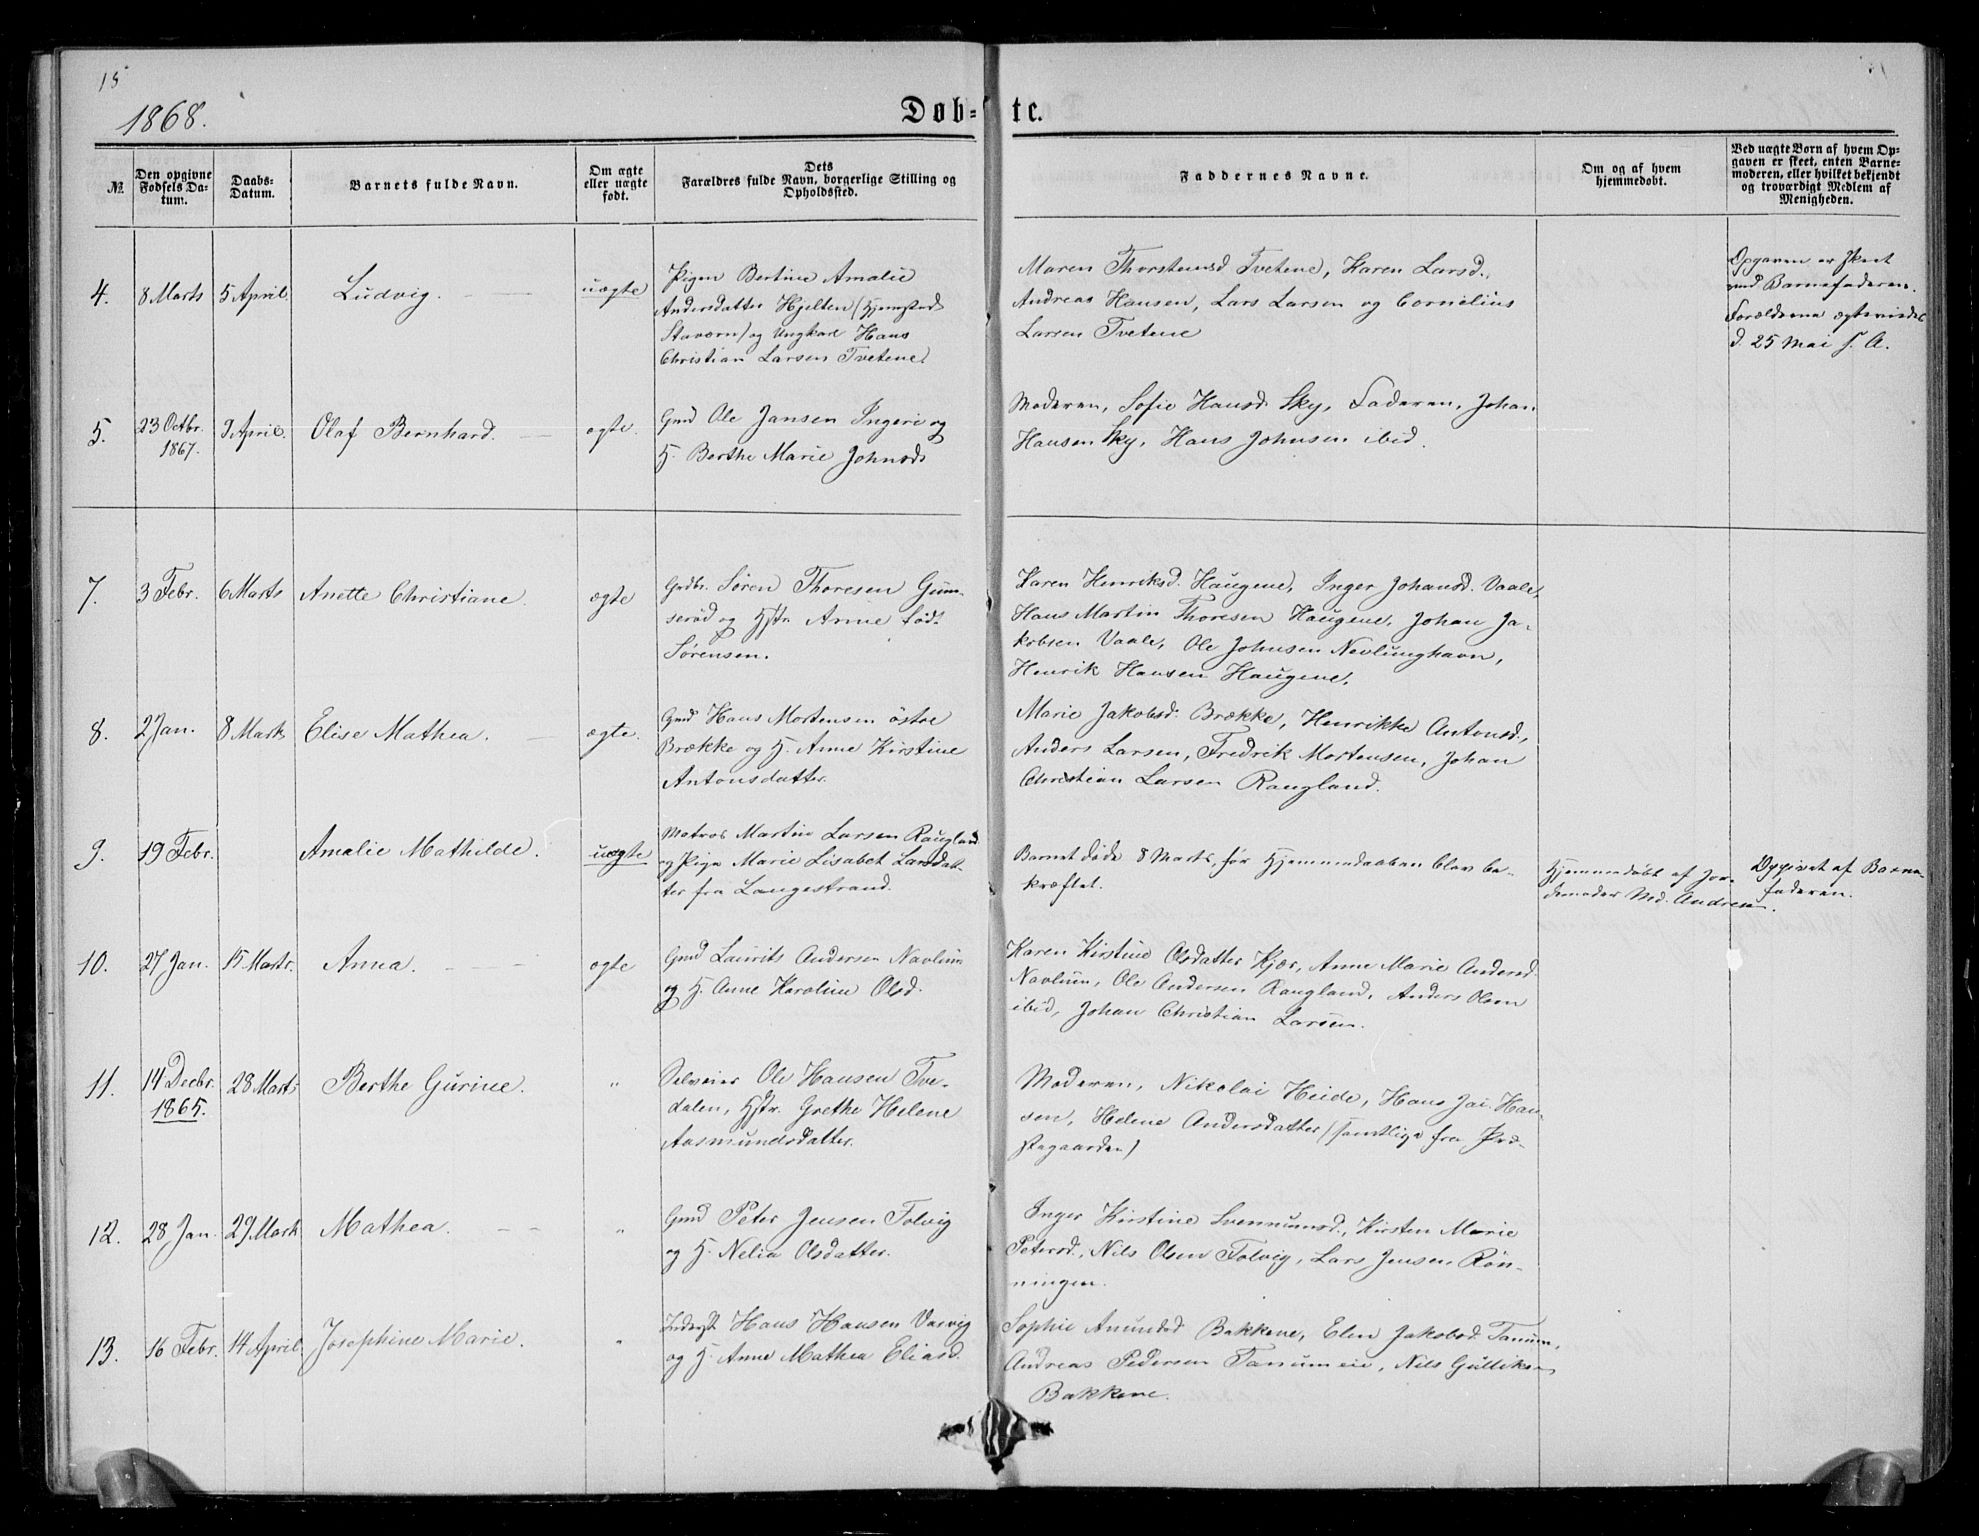 15
1868.
Døb- te.
№
Den opgivne Fødsels Da-
tum.
Daabs-
Datum.
Barnets fulde Navn.
Om ægte
eller uægte
født.
Dets
Forældres fulde Navn, borgerlige Stilling og
Opholdssted.
Faddernes Navne.
Om og af hvem
hjemmedøbt.
Ved uægte Børn af hvem Op-
gaven er skeet, enten Barne-
moderen, eller hvilket bekjendt
og troværdigt Medlem af
Menigheden.
4.
8 Marts
5 April.
Ludvig.
uægte
Pigen Bertine Amalie
Andersdatter Hjelten (Hjemsted
Stavern) og Ungkarl Hans
Christian Larsen Tvetene.
Maren Thorstensd Tvetene, Karen Larsd.,
Andreas Hansen, Lars Larsen og Cornelius
Larsen Tvetene
Opgaven er skeet
ved Barnefaderen.
Forældrene ægteviedes
d. 25 Mai s. A.
5.
23 Octbr.
1867.
9 April.
Olaf Bernhard.
ægte.
Gmd Ole Jansen Ingeri og
H. Berthe Marie Johnsd
Moderen, Sofie Hansd. Sky, Faderen, Johan
Hansen Sky, Hans Johnsen ibid.
7.
3 Febr.
6 Marts
Anette Christiane.
ægte
Grdbr. Søren Thoresen Gum-
serød og Hstr. Anne født
Sørensen.
Karen Henriksd. Haugene, Inger Johansd. Vaale,
Hans Martin Thoresen Haugene, Johan Ja-
kobsen Vaale, Ole Johnsen Nevlunghavn,
Henrik Hansen Haugene.
8.
2 Jan.
8 Marts
Elise Mathea.
ægte.
Gmd Hans Mortensen østre
Brække og H. Anne Kirstine
Antonsdatter.
Marie Jakobsd. Brække, Henrikke Antonsd.,
Anders Larsen, Fredrik Mortensen, Johan
Christian Larsen Raugland.
9.
19 Febr.
Amalie Mathilde.
uægte
Matros Martin Larsen Raugland
og Pige Marie Lisabet Larsdat-
ter fra Langestrand.
Barnet døde 8 Marts, før Hjemmedaaben blev be-
kræftet.
Hjemmedøbt af Jor-
demoder Md. Andresen.
Opgivet af Barne-
faderen.
10.
27 Jan.
15 Marts.
Anna.
ægte
Gmd Laurits Andersen Navlum
og H. Anne Karoline Olsd.
Karen Kirstine Olsdatter Kjær, Anne Marie Andersd
Navlum, Ole Andersen Raugland, Anders Olsen
ibid, Johan Christian Larsen.
11.
14 Decbr.
1865.
28 Marts
Berthe Gurine.
"
Selveier Ole Hansen Tve-
dalen, Hstr. Grethe Helene
Aasmundsdatter.
Moderen, Nikolai Heide, Hans Jai. Han-
sen, Helene Andersdatter (samtlige fra Præ-
stegaarden)
12.
28 Jan.
29 Marts
Mathea.
"
Gmd Peter Jensen Folvig
og H. Nelia Olsdatter.
Inger Kirstine Svennumsd., Kirsten Marie
Petersd., Nils Olsen Folvig, Lars Jensen Røn-
ningen.
13.
16 Febr.
14 April.
Josephine Marie.
"
Inderst Hans Hansen Varvig
og H. Anne Mathea Eliasd.
Sophie Amundsd Bakkene, Elen Jakobsd. Tanum,
Andreas Pedersen Tanumeie, Nils Gulliksen
Bakkene.